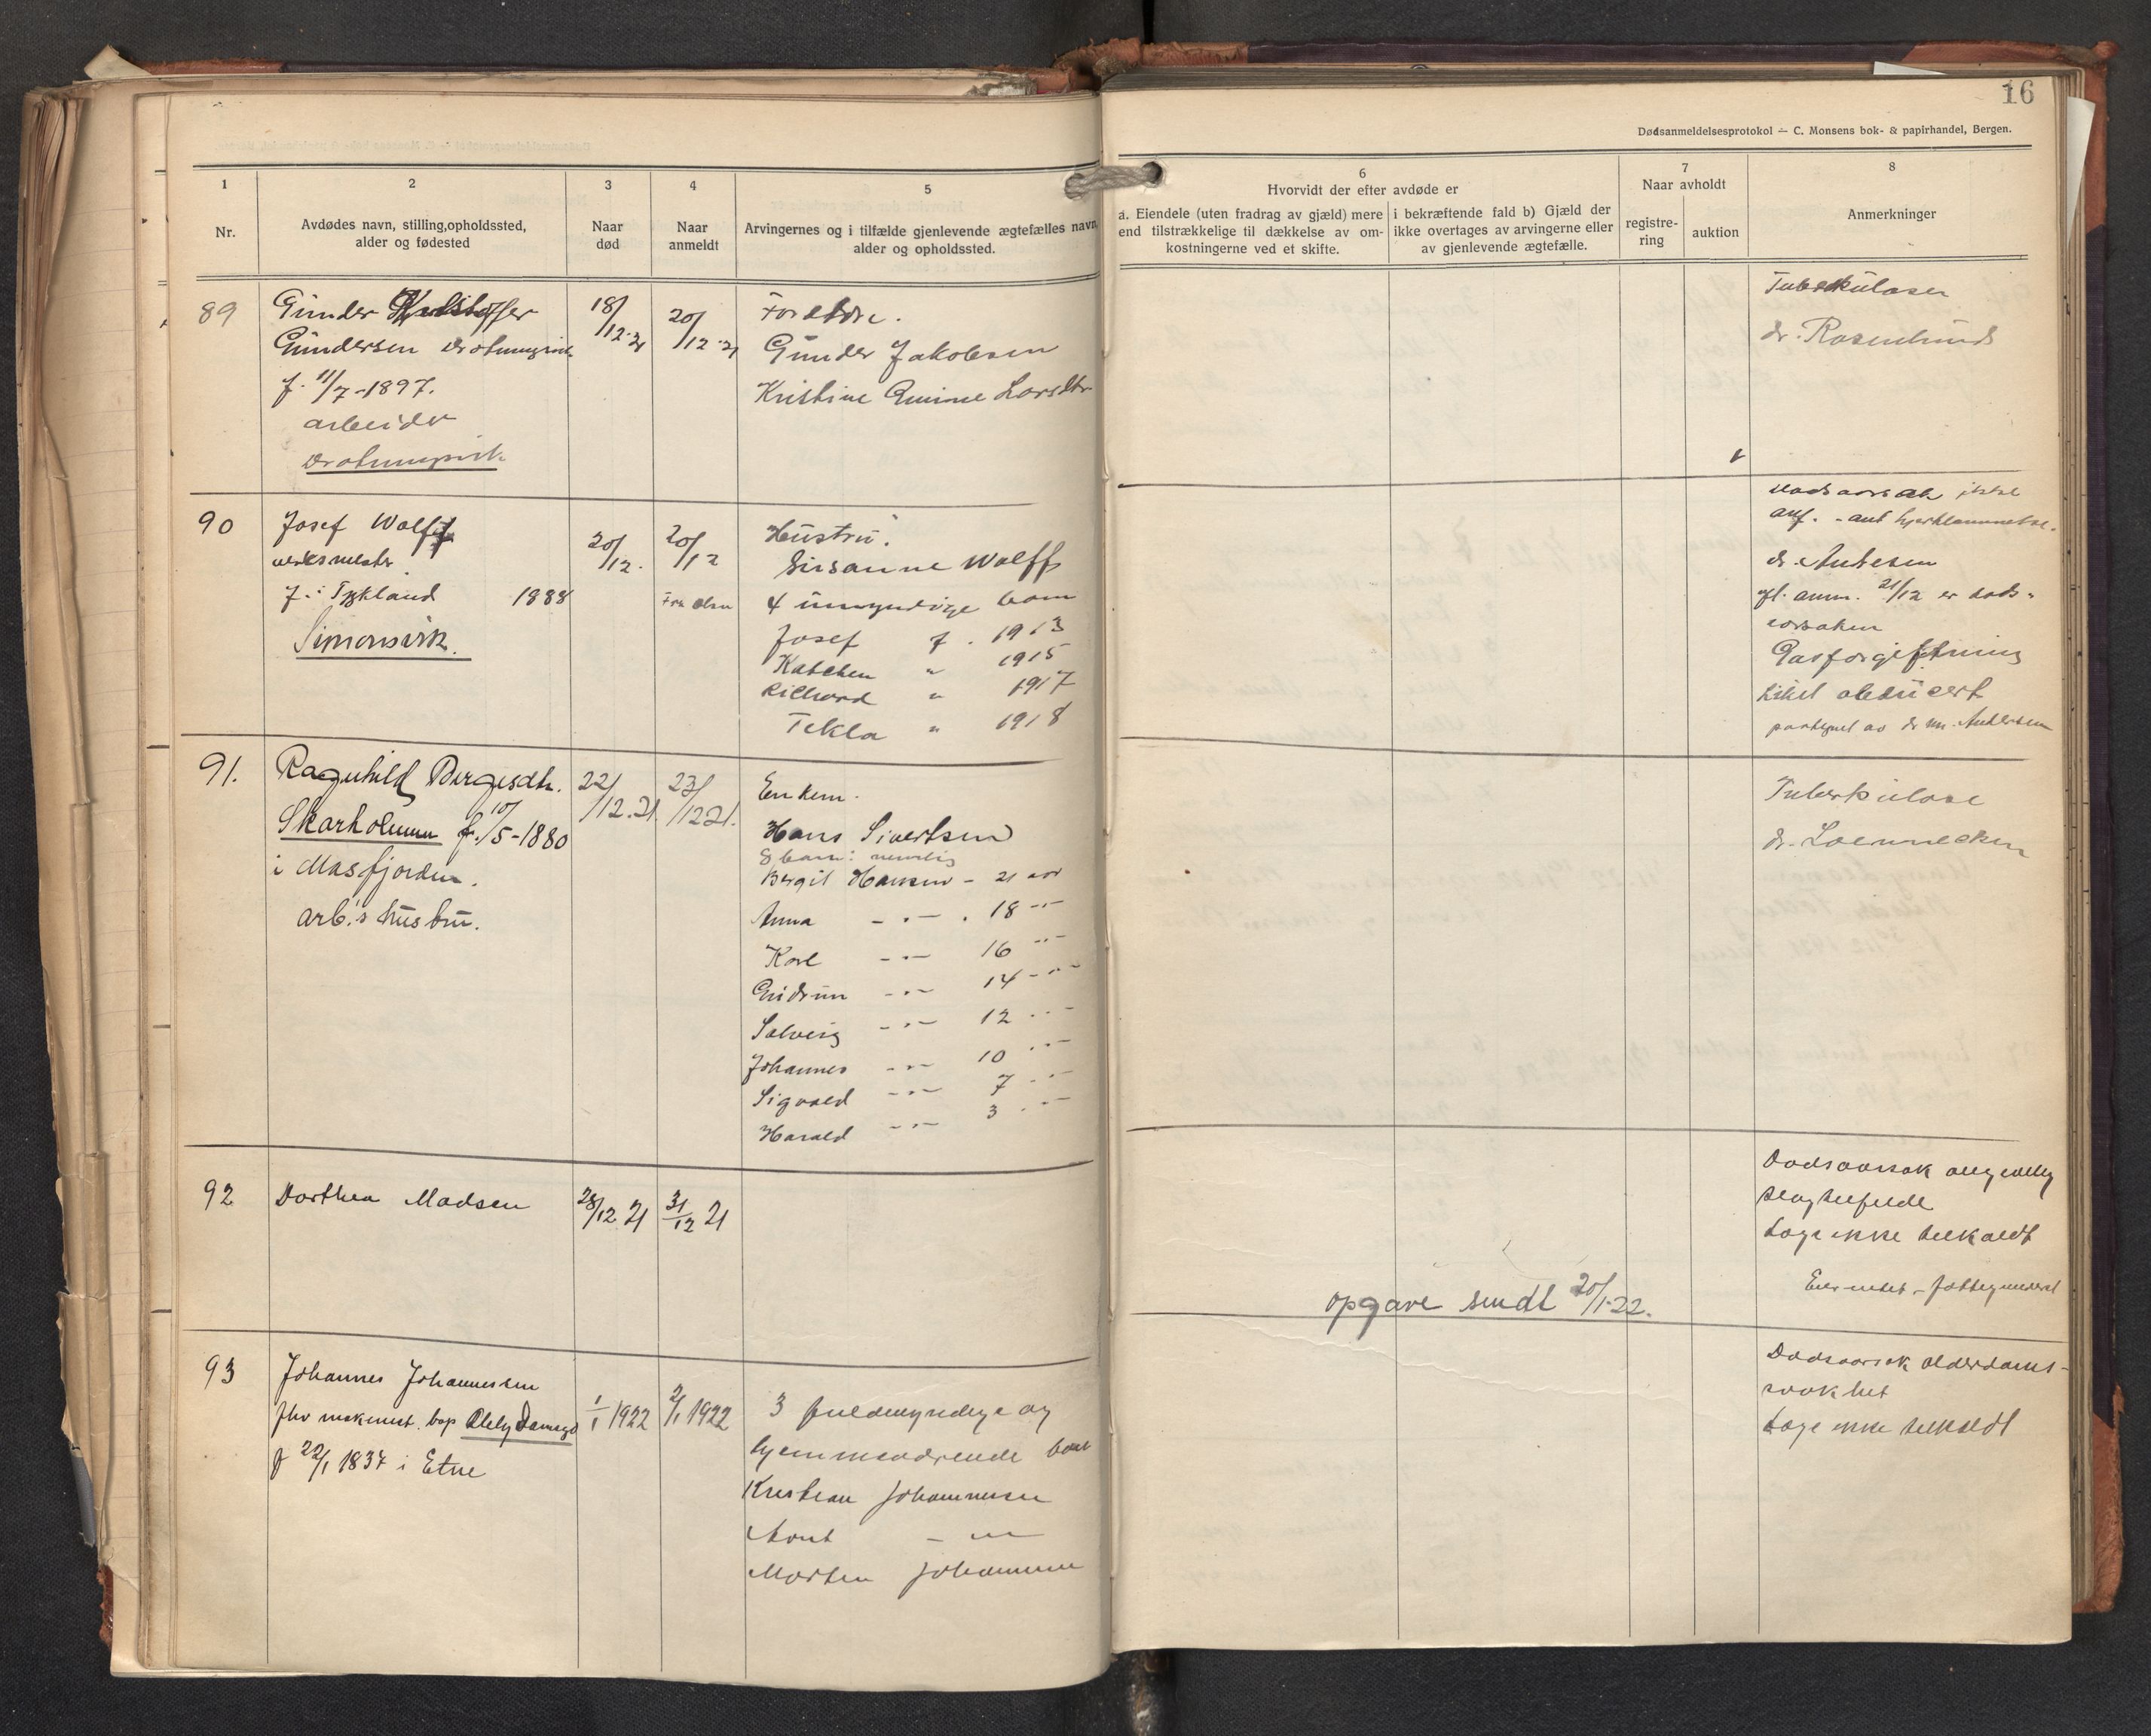 16
Dødsanmeldelsesprotokol — C. Monsens bok- & papirhandel, Bergen.
1
Nr.
2
Avdødes navn, stilling, opholdssted,
alder og fødested
3
Naar
død
4
Naar
anmeldt
5
Arvingernes og i tilfælde gjenlevende ægtefælles navn,
alder og opholdssted.
6
Hvorvidt der efter avdøde er
a. Eiendele (uten fradrag av gjæld) mere
end tilstrækkelige til dækkelse av om-
kostningerne ved et skifte.
i bekræftende fald b) Gjæld der
ikke overtages av arvingerne eller
av gjenlevende ægtefælle.
7
Naar avholdt
registre-
ring
auktion
8
Anmerkninger
89
Gunder Kristoffer
Gundersen
f. 11/7-1897.
arbeider
18/12-21
20/12-21
Forældre.
Gunder Jakobsen
Kristine Larsdtr
Tuberkulose
dr. Rosenlund
90
Josef Wolff
verksmester
f. i Tyskland 1888
Simonsvik.
20/12.
20/12
Hustru:
Susanne Wolff
4 umyndige barn
Josef f. 1913
Katchen " 1915
Richard " 1917
Tekla " 1918
Dødsaarsak ikke
dr.
21/12 er døds-
aarsaken
Gasforgiftning
Liket obducert
91.
Ragnhild Birgesdtr.
Skarholmen f. 10/5-1880
i Masfjorden.
arb.'s hustru.
22/12.21.
23/12 21.
Enkem.
Hans Sivertsen
8 barn: nemlig
Bergit Hansen - 21 aar
Anna - " - 18 - " -
Karl - " - 16 - " -
Gudrun - " - 14 - " -
Solveig - " - 12 - " -
Johannes - " - 10 - " -
Sigvald - " - 7 - " -
Harald - " - 3 - " -
Tuberkulose
dr. Loennecken
92
Dorthea Madsen
28/12 21
31/12 21
Dødsaarsak
slagtilfælde
Læge ikke tilkaldt
opgave sendt 20/1-22.
93
Johannes Johannessen
f 22/1 1837 i Etne
1/1 1922
2/1 1922
3 fuldmyndige og
hjemmeværende barn
Kristian Johannessen
Morten Johannessen
Dødsaarsak alderdoms-
svakhet
Læge ikke tilkaldt